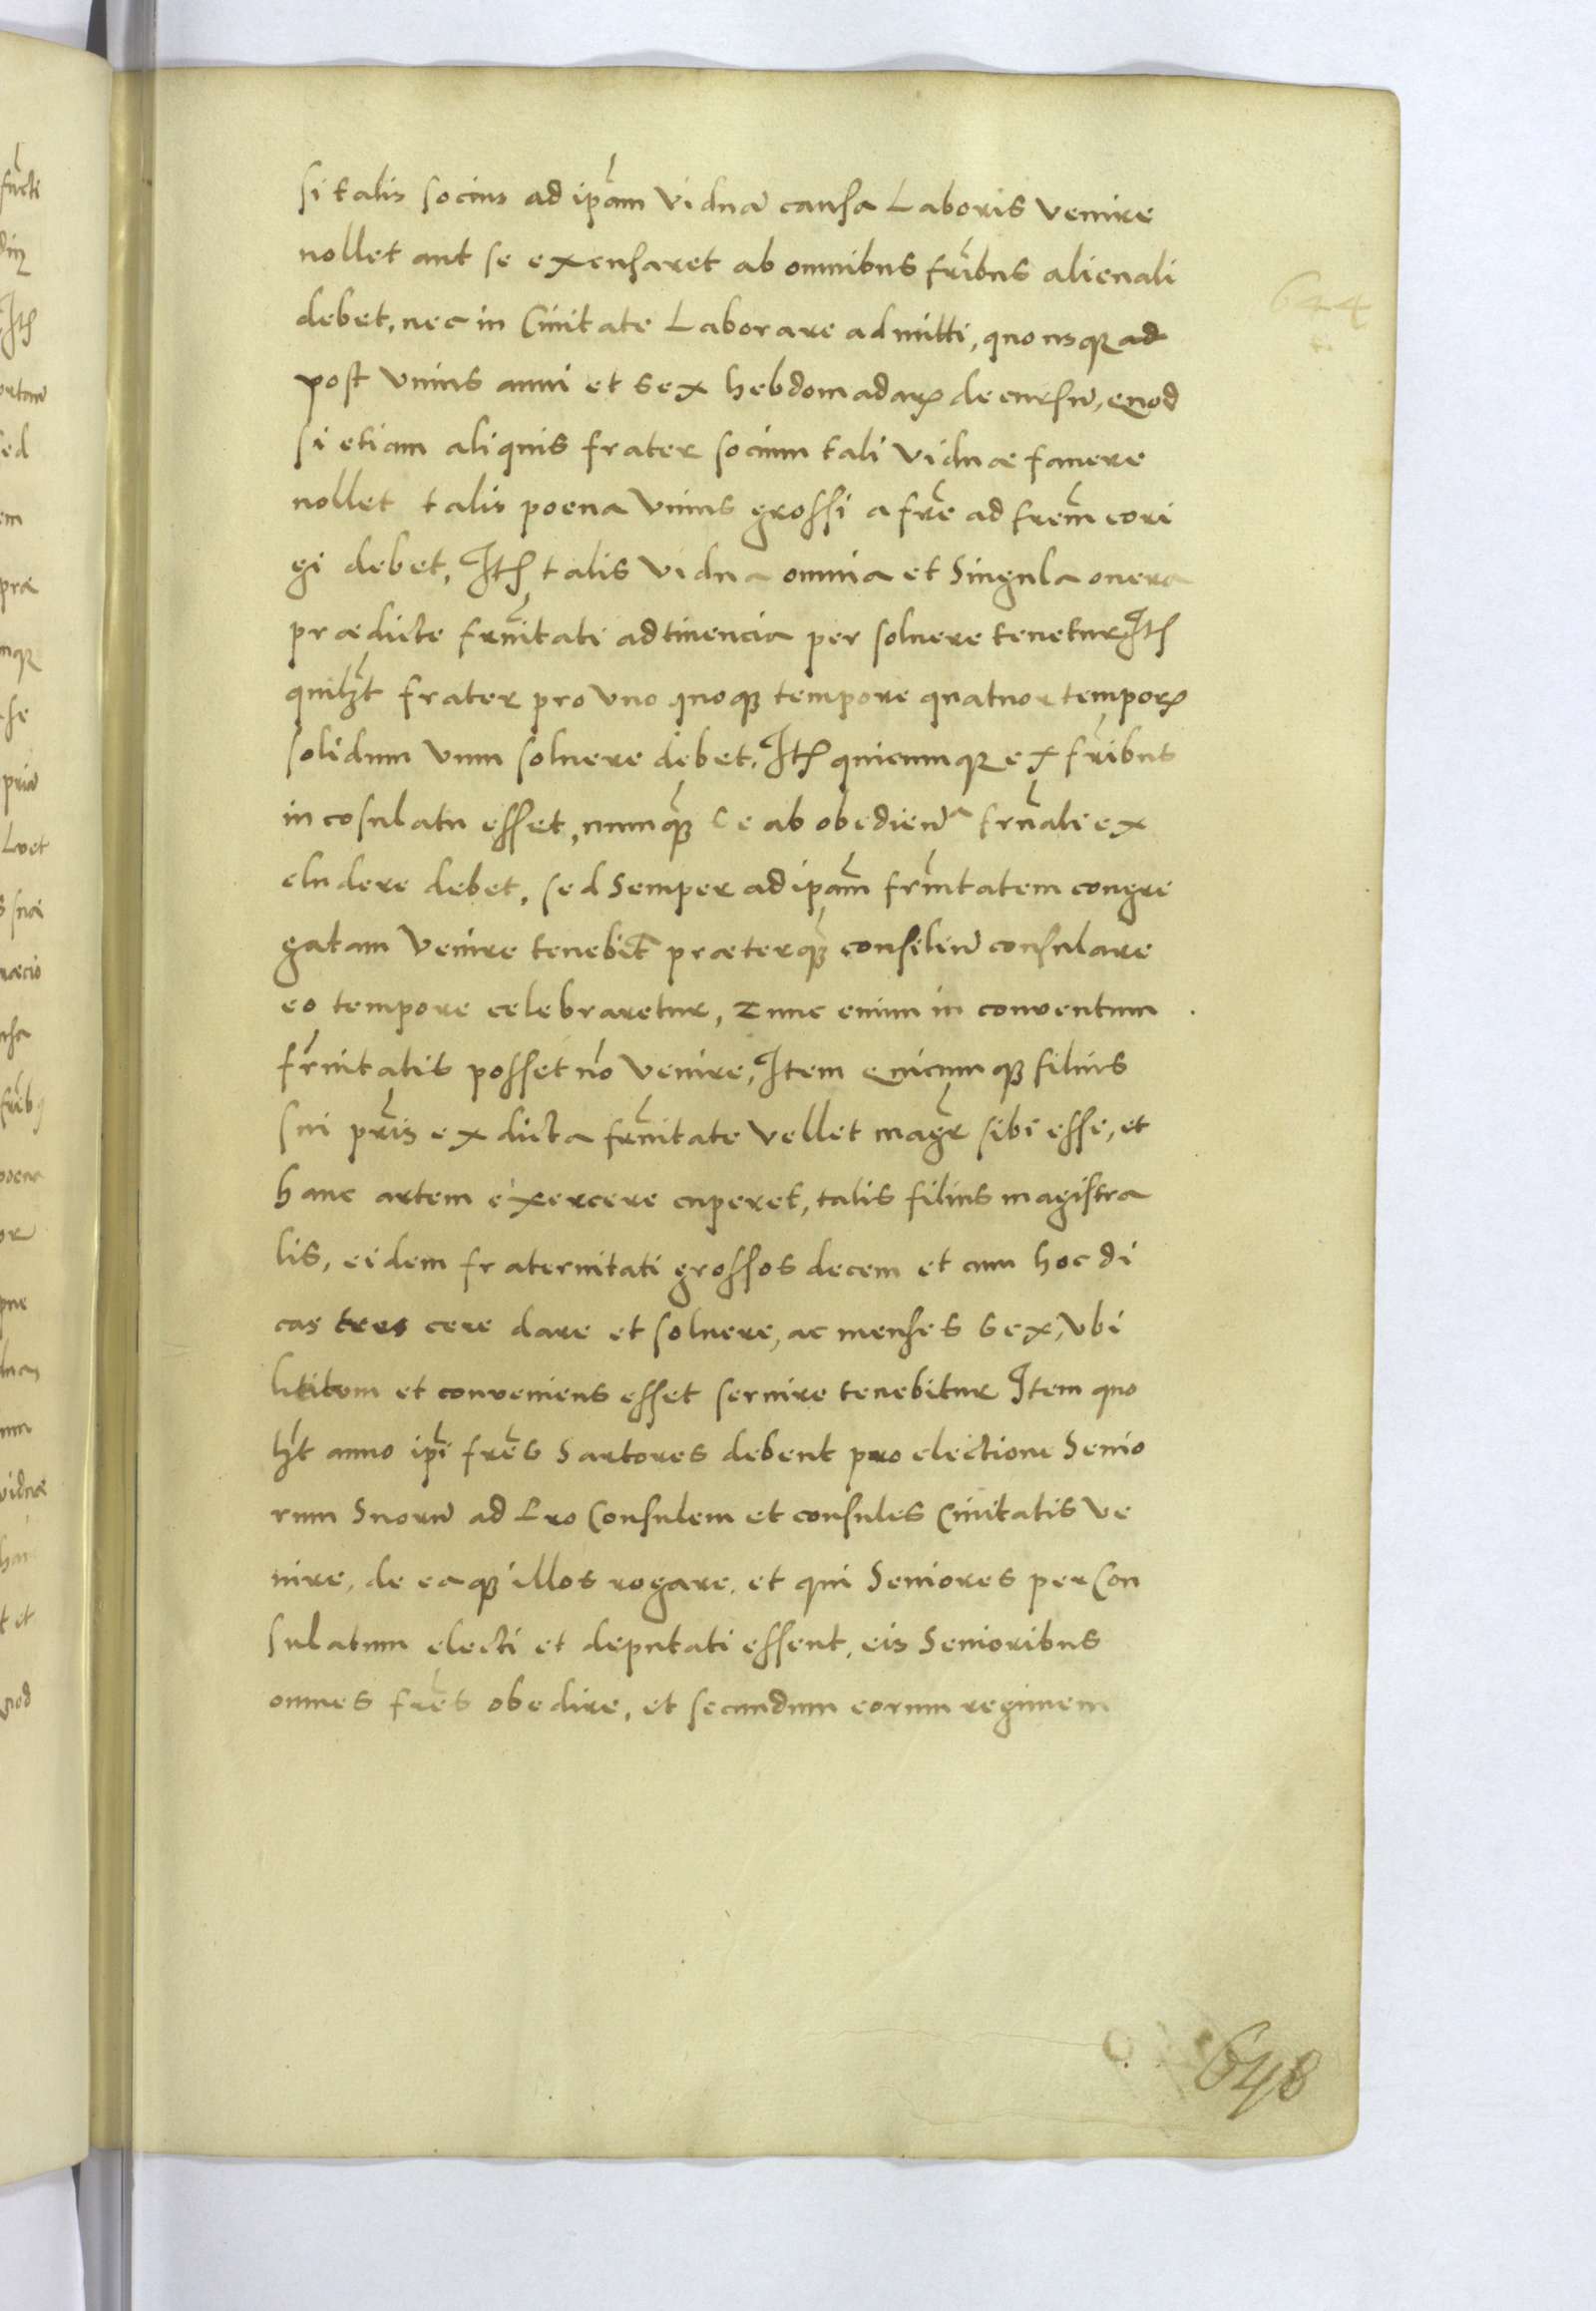 si talis socius ad ip̃am viduā causa Laboris venire
nollet aut se excusaret ab omnibus fr̃ibus alienali
644
debet, nec in Ciuitate Laborare admitti, quousq; ad
post vnius anni et sex hebdomadaꝝ decursū, Quod
si etiam aliquis frater socium tali viduæ fauere
nollet talis poena vnius grossi a fr̃e ad fr̃em cori
gi debet, Itꝭ talis vidua omnia et Singula onera
prædicte frñitati adtinencia per soluere tenetur, Itꝭ
quilꝫt frater pro vno quoq; tempore quatuor tempoꝝ
solidum vnum soluere debet, Itꝭ quicumq; ex fr̃ibus
in cosulatu esset, numq̃ȝ se ab obedienᵃ frñali ex
cludere debet, sed Semper ad ip̃am frñitatem congre
gatam venire tenebit̃ præterq̃ȝ consiliū consulare
eo tempore celebraretur, Tunc enim in conventum
frñitatis posset nō venire, Item Quicumq; filius
sui pr̃is ex dicta frñitate vellet magr̃ sibi esse, et
hanc artem exercere cuperet, talis filius magistra
lis, eidem fraternitati grossos decem et cum hoc di
cas tres cere dare et soluere, ac menses sex, vbi
licitum et conveniens esset seruire tenebitur Item quo
lꝫt anno ip̃i fr̃es Sartores debent pro electione Senio
rum Suorū ad Pro Consulem et consules Ciuitatis ve
nire, de eaq; illos rogare, et qui Seniores per Con
sulatum electi et deputati essent, eis Senioribus
omnes fr̃es obedire, et secundum eorum regimem
648